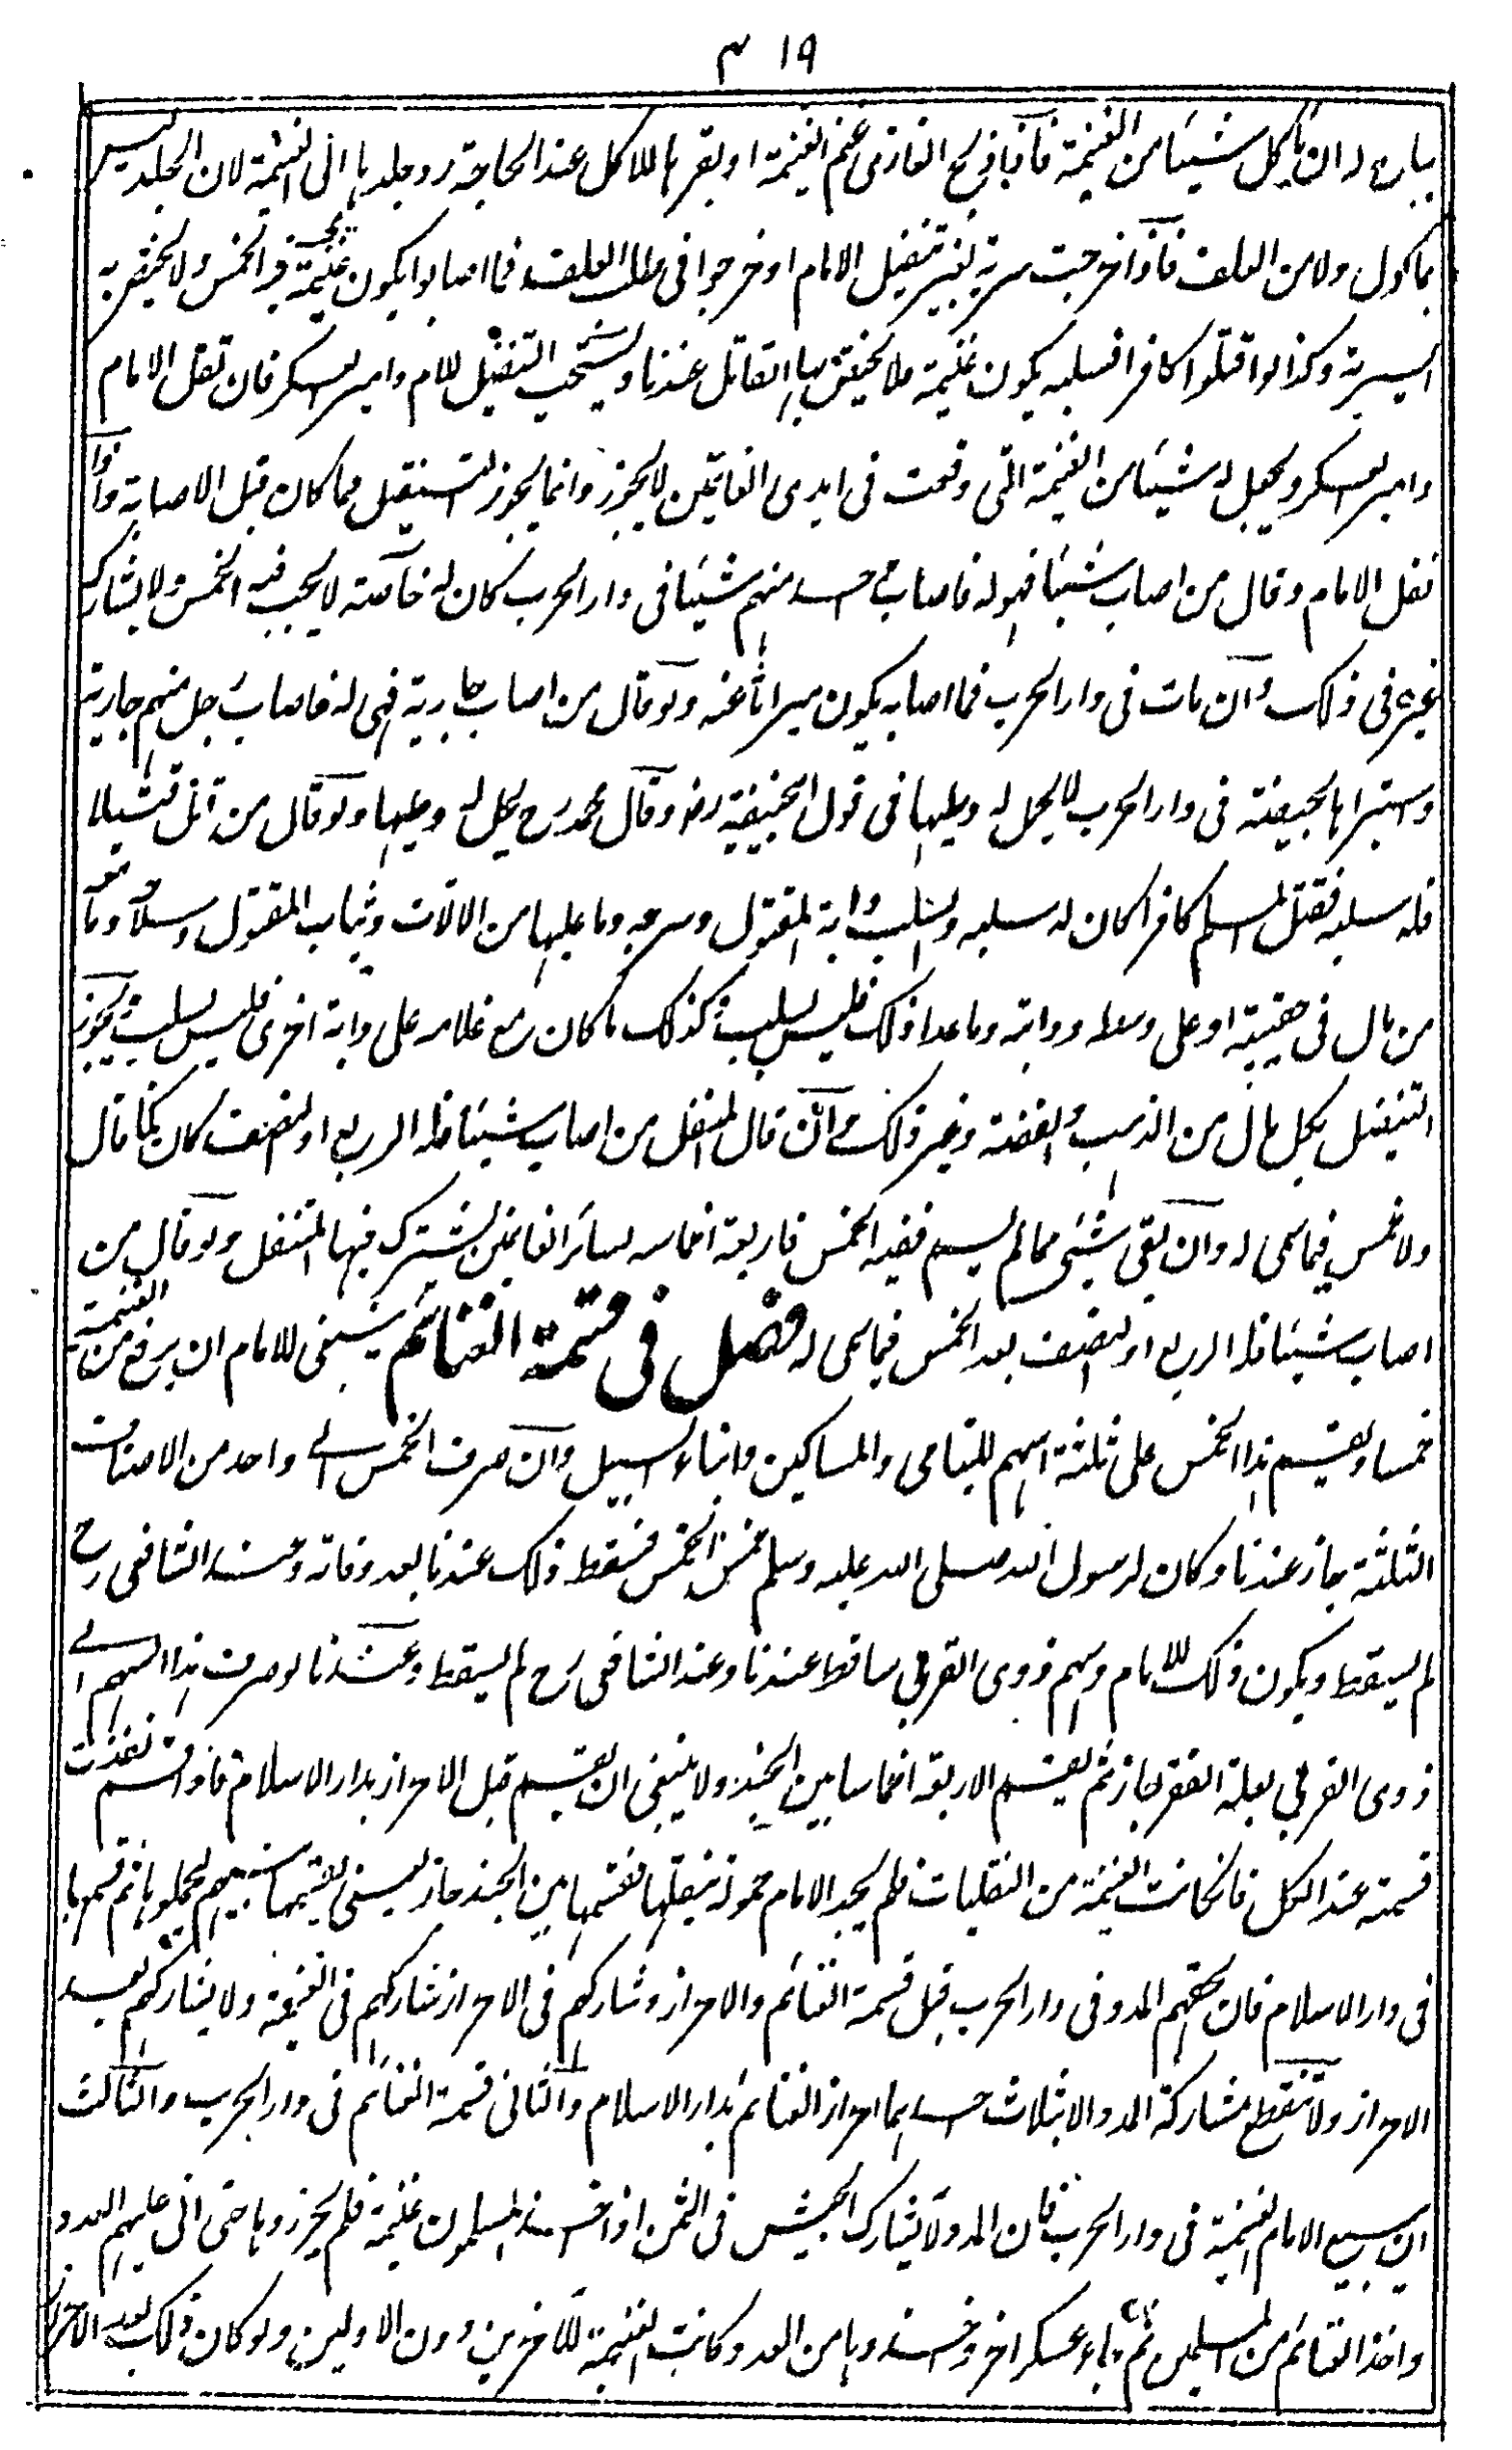 ٣١٩
يباح له ان ياكل شيئا من الغنيمة فاذا ذبح الغازى غنم الغنيمة او بقرها للاكل عند الحاجة رد جلدها الى الغنيمة لان الجلد ليس
بماكول ولا من العلف فاذا خرجت سرية بغير تنفيل الامام او خرجوا فى طلب العلف فما اصابوا يكون غنيمة يجب فيه الخمس ولا يختص به
السرية وكذا لو اقتلوا كافرا فسلبه يكون غنيمة ولا يختص بها القاتل عندنا ويستحب التنفيل للامام وامير العسكر فان نفل الامام
وامير العسكر ويجعل له شيئا من الغنيمة التى وقعت فى ايدى الغانمين لا يجوز وانما يجوز التنفيل مما كان قبل الاصابة واذا
نفل الامام وقال من اصاب شيئا فهو له فاصاب احد منهم شيئا فى دار الحرب كان له خاصة لا يجب فيه الخمس ولا يشارك
غيره فى ذلك وان مات فى دار الحرب فما اصابه يكون ميراثا عنه ولو قال من اصاب جارية فهى له فاصاب رجل منهم جارية
وستبراها بحيضة فى دار الحرب لا يحل له وطيها فى قول ابيحنيفة رض وقال محمد رح يحل له وطيها ولو قال من قتل قتيلا
فله سلبه فقتل المسلم كافرا كان له سلبه والسلب دابة المقتول وسرجه وما عليها من الالات وثياب المقتول وسلاحه وما معه
من مال فى حقيبته او على وسطه ودابته وما عدا ذلك فليس بسلب وكذلك ما كان مع غلامه على دابة اخرى فليس بسلب ويجوز
التنفيل بكل مال من الذهب والفضة وغير ذلك وان قال المنفل من اصاب شيئا فله الربع او النصف كان كما قال
ولا خمس فيما سمى له وان بقى شيئى مما لم يسم ففيه الخمس فاربعة اخماسه لسائر الغانمين يشترك فيها المتنفل ولو قال من
اصاب شيئا فله الربع او النصف بعد الخمس فيما سمى له فصل فى قسمة الغنائم ينبغى للامام ان يرفع من الغنيمة
خمسا ويقسم هذا الخمس على ثلثة اسهم لليتامى والمساكين وابناء السبيل وان صرف الخمس الى واحد من الاصناف
الثلثة جاز عندنا وكان لرسول الله صلى الله عليه وسلم خمس الخمس فسقط ذلك عندنا بعد وفاته وعند الشافعى رح
لم يسقط ويكون ذلك للامام وسهم ذوى القربى ساقط عندنا وعند الشافعى رح لم يسقط وعندنا لو صرف هذا السهم الى
ذوى القربى بعلة الفقر جاز ثم يقسم الاربعة اخماسا بين الجند ولا ينبغى ان يقسم قبل الاحراز بدار الاسلام فاذا قسم نفذت
قسمته عند الكل فان كانت الغنيمة من النقليات فلم يجد الامام حمولة ينقلها فقسمها بين الجند جاز يعنى يقسمها بينهم ليحملوها ثم قسمها
فى دار الاسلام فان لحقهم المدد فى دار الحرب قبل قسمة الغنائم والاحراز وشاركهم فى الاحراز شاركهم فى الغنيمة ولا يشاركهم بعد
الاحراز ولا تنقطع مشاركة المدد الا بثلاث احدايها احراز الغنائم بدار الاسلام والثانى قسمة الغنائم فى دار الحرب والثالث
ان يبيع الامام الغنيمة فى دار الحرب فان المدد لا يشارك الجيش فى الثمن اذا اخذ المسلمون غنيمة فلم يحرزوها حتى اتى عليهم العدو
واخذ الغنائم من المسلمين ثم جاء عسكر اخر واخذوها من العدو كانت الغنيمة للاخرين دون الاولين ولو كان ذلك بعد الاحراز